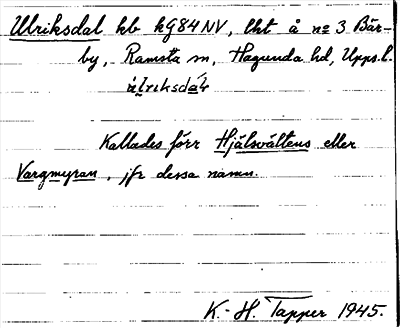 Ulriksdal hb kg84NV, lht å nº 3 Bär-
by, Ramsta sn, Hagunda hd, Upps.l.
Kallades förr Hjälsvältens eller
Vargmyran, jfr dessa namn.
K.-H. Tapper 1945.